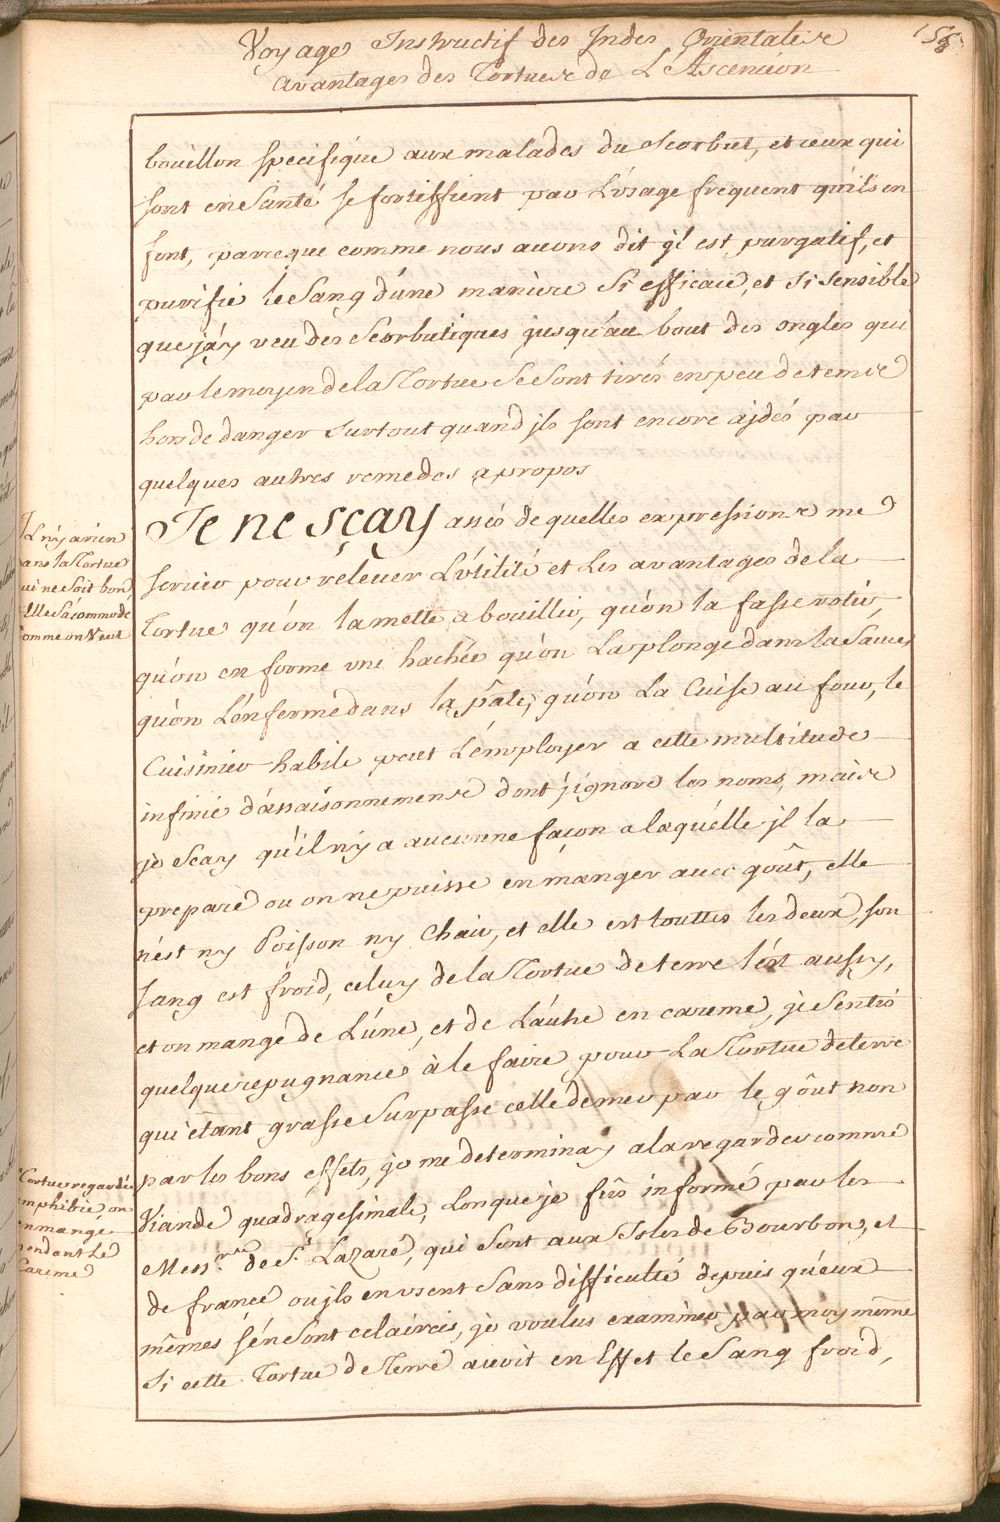 Voyage Instructif des Indes Orientales
avantages des Tortues de L'Ascencion
158
bouillon specifique aux malades du Scorbut, et ceux qui
sont en Santé se fortiffient par L'usage frequent qu'ils en
font, parceque comme nous avons dit q'il est purgatif, et
purifie le Sang d'une maniere Si efficace, et Si Sensible
que j'ay veu des Scorbutiques jusqu'au bout des ongles qui
par le moyen de la Tortue Se Sont tirés en peu de tems
hors de danger Surtout quand jls sont encore ajdés par
quelques autres remedes apropos
Il n'y a rien
dans la Tortue
qui ne Soit bon,
Elle S'acommode
Comme on Veut
Je ne sçay assés de quelles expressions me
servir pour relever L'utilité et Les avantages de la
Tortue qu'on la mette a bouillir, qu'on la fasse rotir,
qu'on en forme une hachée qu'on La plonge dans la Sauce,
qu'on L'enferme dans la pâte, qu'on La Cuise au four, le
Cuisinier habile peut L'employer a cette multitude
infinie d'assaisonnemens dont j'ignore les noms, mais
je Scay qu'il n'y a aucunne façon a laquelle jl la
prepare ou on ne puisse en manger avec goût, elle
n'est ny Poisson ny Chair, et elle est touttes les deux, son
Sang est froid, celuy de la Tortue de terre l'est aussy,
et on mange de L'une, et de L'autre en careme, je Sentis
quelque repugnance à le faire pour La Tortue de terre
qui étant grasse Surpasse celle de mer par le goût non
par les bons effets, je me determinay a la regarder comme
Viande quadragesimale, Lorsque je fus informé par les
Mess.rs de S.t Lazare, qui Sont aux Isles de Bourbon, et
de france ou jls en usent Sans difficulté depuis qu'eux
mêmes s'en Sont eclaircis, je voulus examiner par moy même
Si cette Tortue de Terre avoit en Effet le Sang froid,
Tortue regardée
amphibie on
en mange
pendant Le
Careme